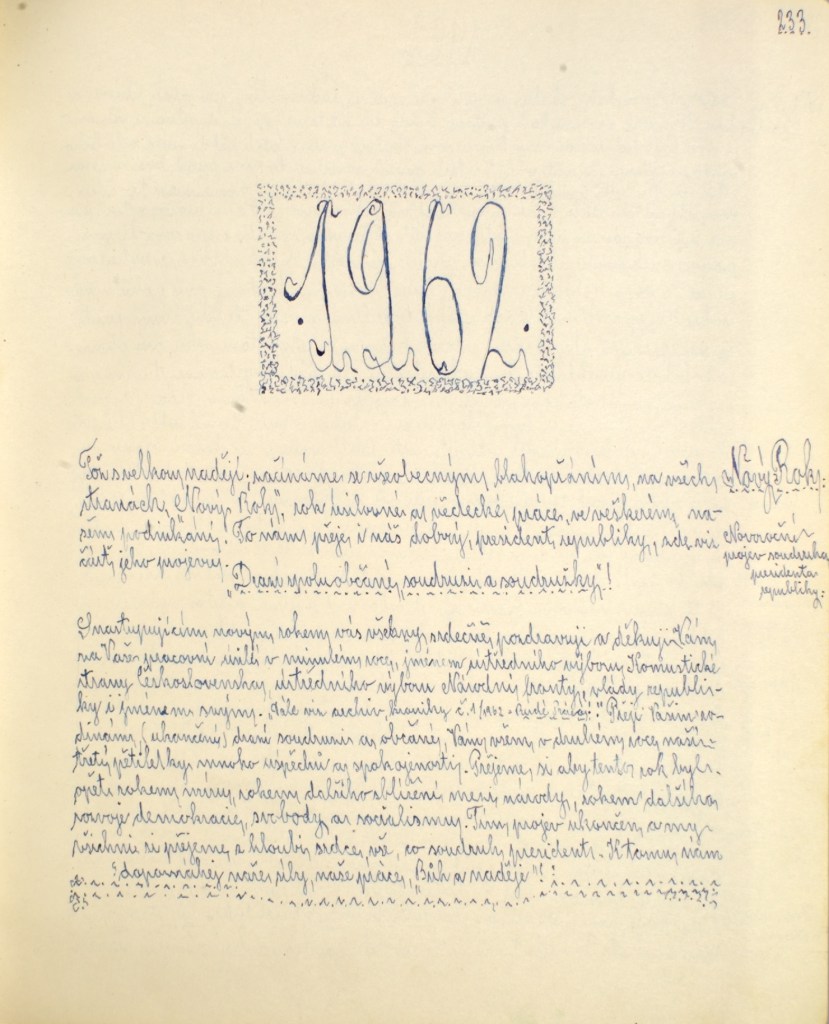 233.
1962
Toť s velkou nadějí, začínáme se všeobecným, blahopřáním, na všech,
stranách, "Nový Rok", rok úsilovné a vědecké, práce, ve veškerém na-
šem, podnikání! To nám, přeje, i náš dobrý, president, republiky, zde viz
část, jeho projevu.
"Drazí spoluobčané, soudruzi a soudružky"!
Nový Rok.
Novoroční
projev soudruha
presidenta
republiky.
S nastupujícím novým, rokem, vás všechny, srdečně, pozdravuji a děkuji Vám,
za Vaše, pracovní úsilí v minulém, roce, jménem ústředního výboru, Komustické
strany Československa, ústředního výboru Národní, fronty, vlády, republi-
ky i jménem svým. "Dále viz archiv, kroniky č. 1/1962 - Rudé Právo." Přeji Vašim ro-
dinám, (ukončení) drazí soudruzi a, občané, Vám, všem, v druhém, roce, naší
třetí, pětiletky, mnoho úspěchů a, spokojenosti. Přejeme, si aby tento rok byl
opět, rokem, míru, rokem, dalšího sblížení, mezi národy, rokem dalšího
rozvoje demokracie, svobody, a socialismu. Tím, projev ukončen, a my-
všichni si přejeme, z hloubi, srdce, vše, co soudruh, president. K tomu nám
dopomáhej naše, síly, naše práce, "Bůh a naděje"!